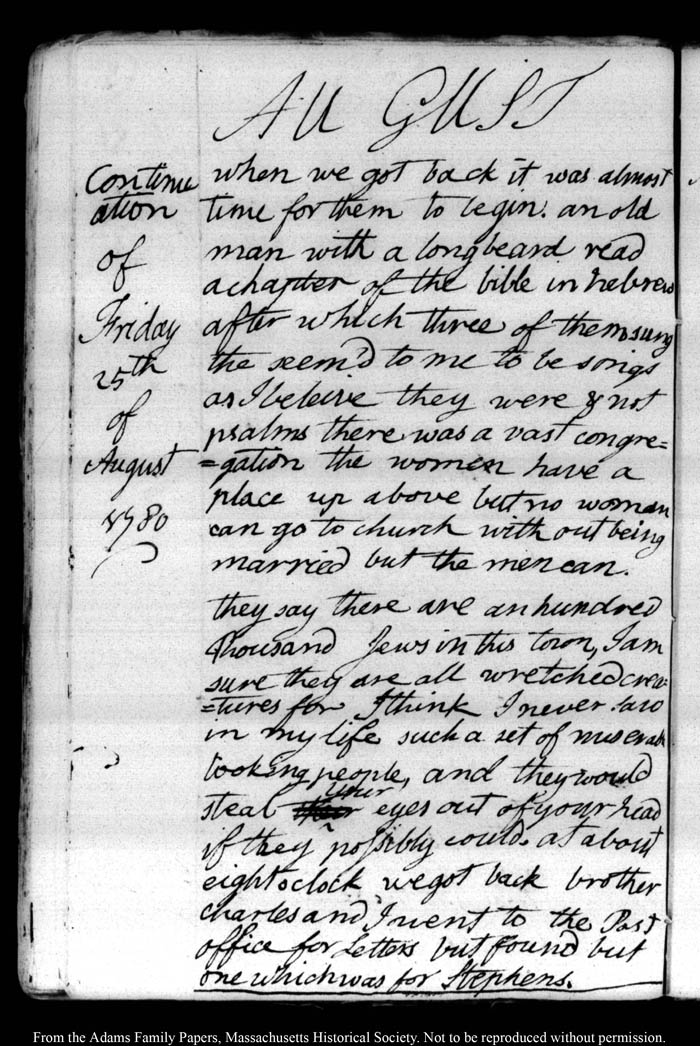 AUGUST
Continu
ation
of
Friday
25th
of
August
1780
when we got back it was almost
time for them to begin. an old
man with a long beard read
a chapter of the bible in hebrew
after which three of them sung
the seem'd to me to be songs
as I beleive they were & not
psalms there was a vast congre=
=gation the women have a
place up above but no woman
can go to church with out being
married but the men can.
they say there are an hundred
thousand Jews in this town, I am
sure they are all wretched crea=
=tures for I think I never saw
in my life such a set of miserable
looking people, and they would
steal your eyes out of your head
if they possibly could. at about
eight o clock we got back brother
charles and I went to the Post
office for Letters but found but
one which was for Stephens.
From the Adams Family Papers, Massachusetts Historical Society. Not to be reproduced without permission.